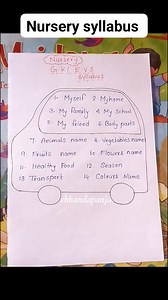 Nursery syllabus
Nursery
G.K / E.V.S
Syllabus
1- Myself 2- My home
3- My Family 4- My School
5- My friend 6- Body parts
7- Animals name 8- Vegetables name
9- Fruits name 10- Flowers name
11- Healthy Food 12- Season
13- Transport 14- Colours Name